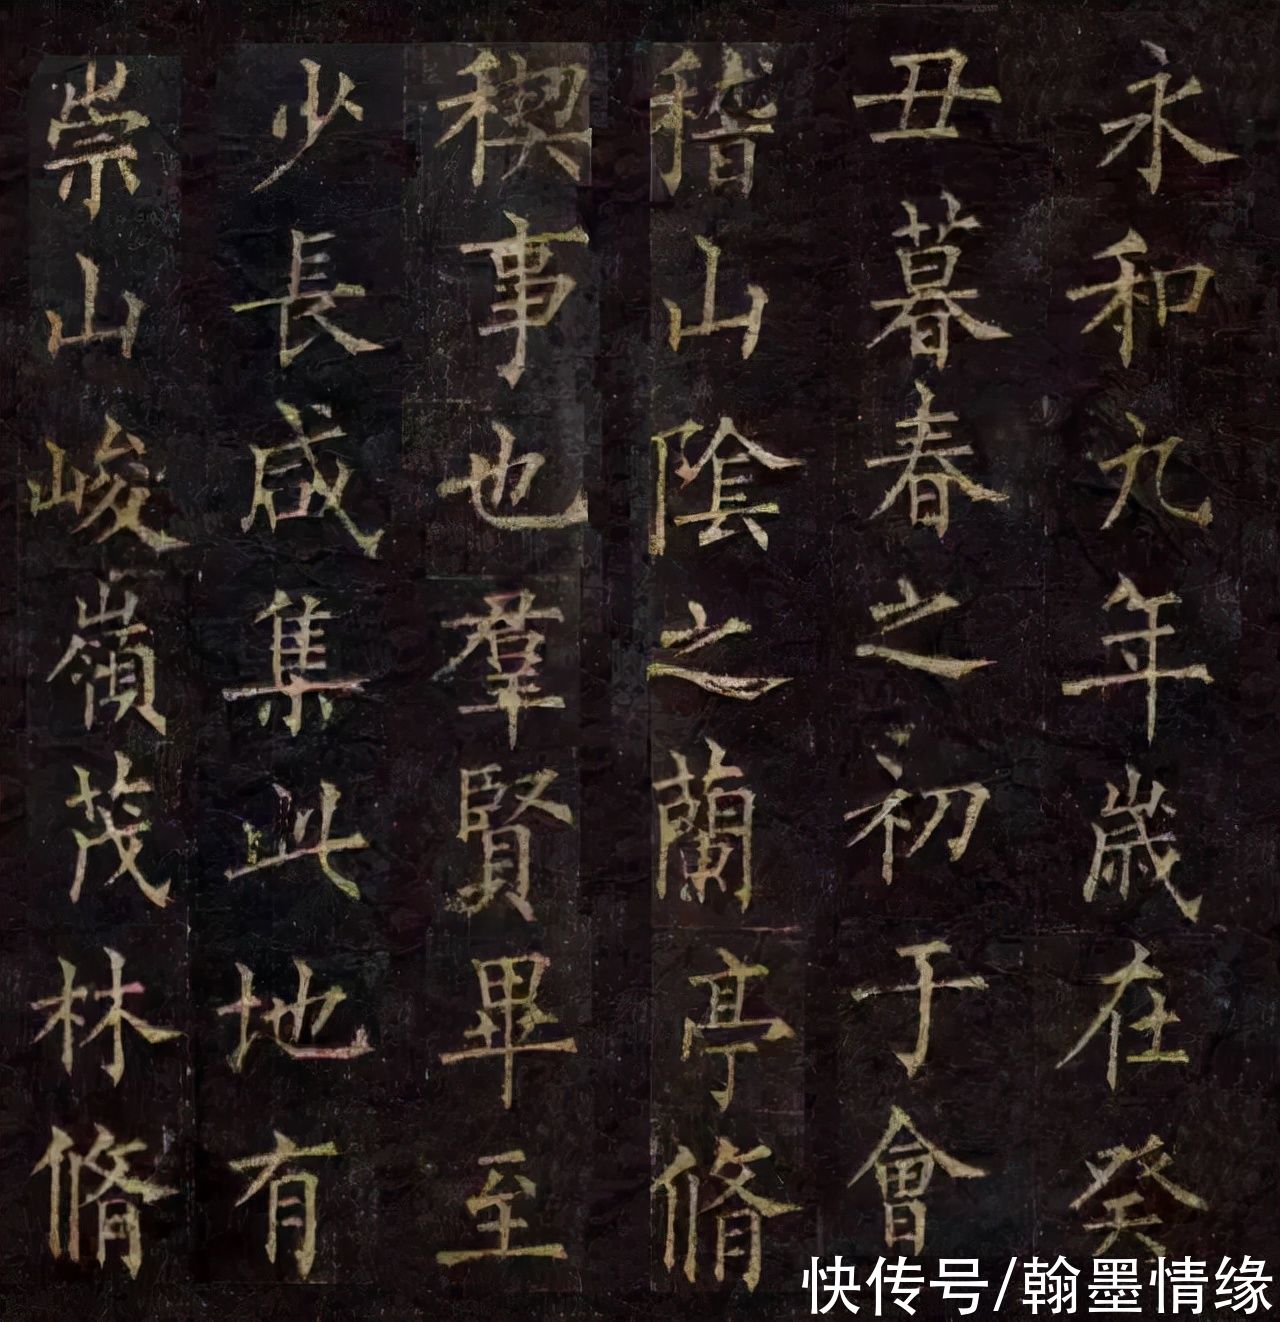 永和九年歲在癸
丑暮春之初于會
稽山陰之蘭亭脩
稧事也羣賢畢至
少長咸集此地有
崇山峻嶺茂林脩
快传号/翰墨情缘